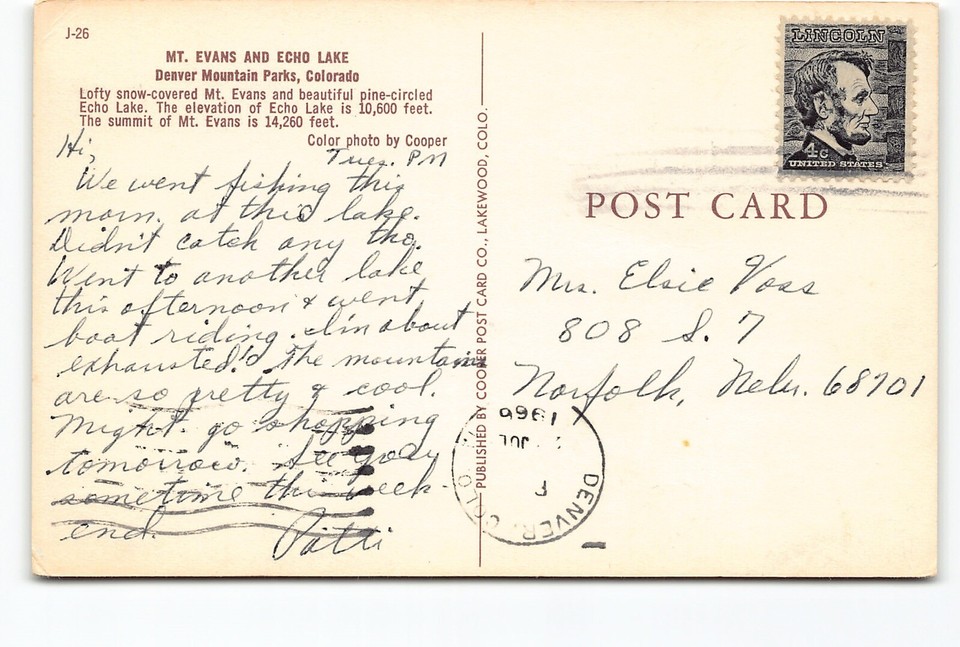 J-26
MT. EVANS AND ECHO LAKE
Denver Mountain Parks, Colorado
Lofty snow-covered Mt. Evans and beautiful pine-circled
Echo Lake. The elevation of Echo Lake is 10,600 feet.
The summit of Mt. Evans is 14,260 feet.
Color photo by Cooper
Hi,
Tues. PM
We went fishing this
morn. at this lake.
Didn't catch any tho.
Went to another lake
this afternoon & went
boat riding. I'm about
exhausted! The mountains
are so pretty & cool.
Might go shopping
tomorrow. See you
sometime this week
end.
Patti
PUBLISHED BY COOPER POST CARD CO., LAKEWOOD, COLO.
LINCOLN
4c
UNITED STATES
POST CARD
Mrs. Elsie Voss
808 S. 7
Norfolk, Nebr. 68701
DENVER, COLO.
JUL
1966